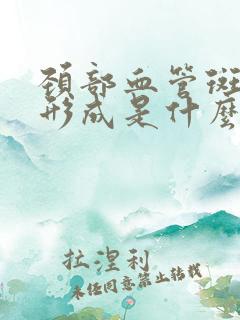 颈部血管斑
形成是什么
拉涅利
未经同意禁止转载